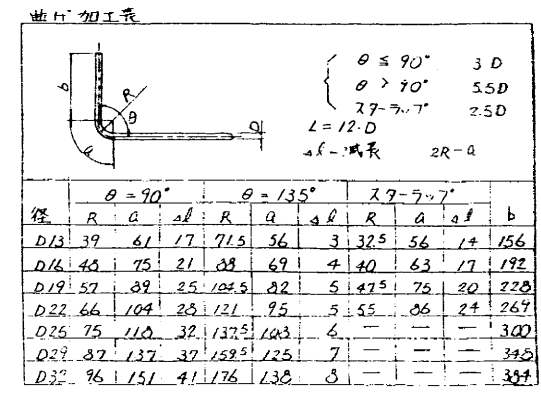 曲げ加工表
b
R
θ
a
D
θ ≦ 90° 3D
θ > 90° 5.5D
スターラップ 2.5D
L = 12・D
Δl - 減長 2R-a
θ = 90° θ = 135° スターラップ
径 R a Δl R a Δl R a Δl b
D13 39 61 17 71.5 56 3 32.5 56 14 156
D16 48 75 21 88 69 4 40 63 17 192
D19 57 89 25 104.5 82 5 47.5 75 20 228
D22 66 104 28 121 95 5 55 86 24 264
D25 75 118 32 137.5 103 6 — — — 300
D29 87 137 37 159.5 125 7 — — — 348
D32 96 151 41 176 138 8 — — — 384